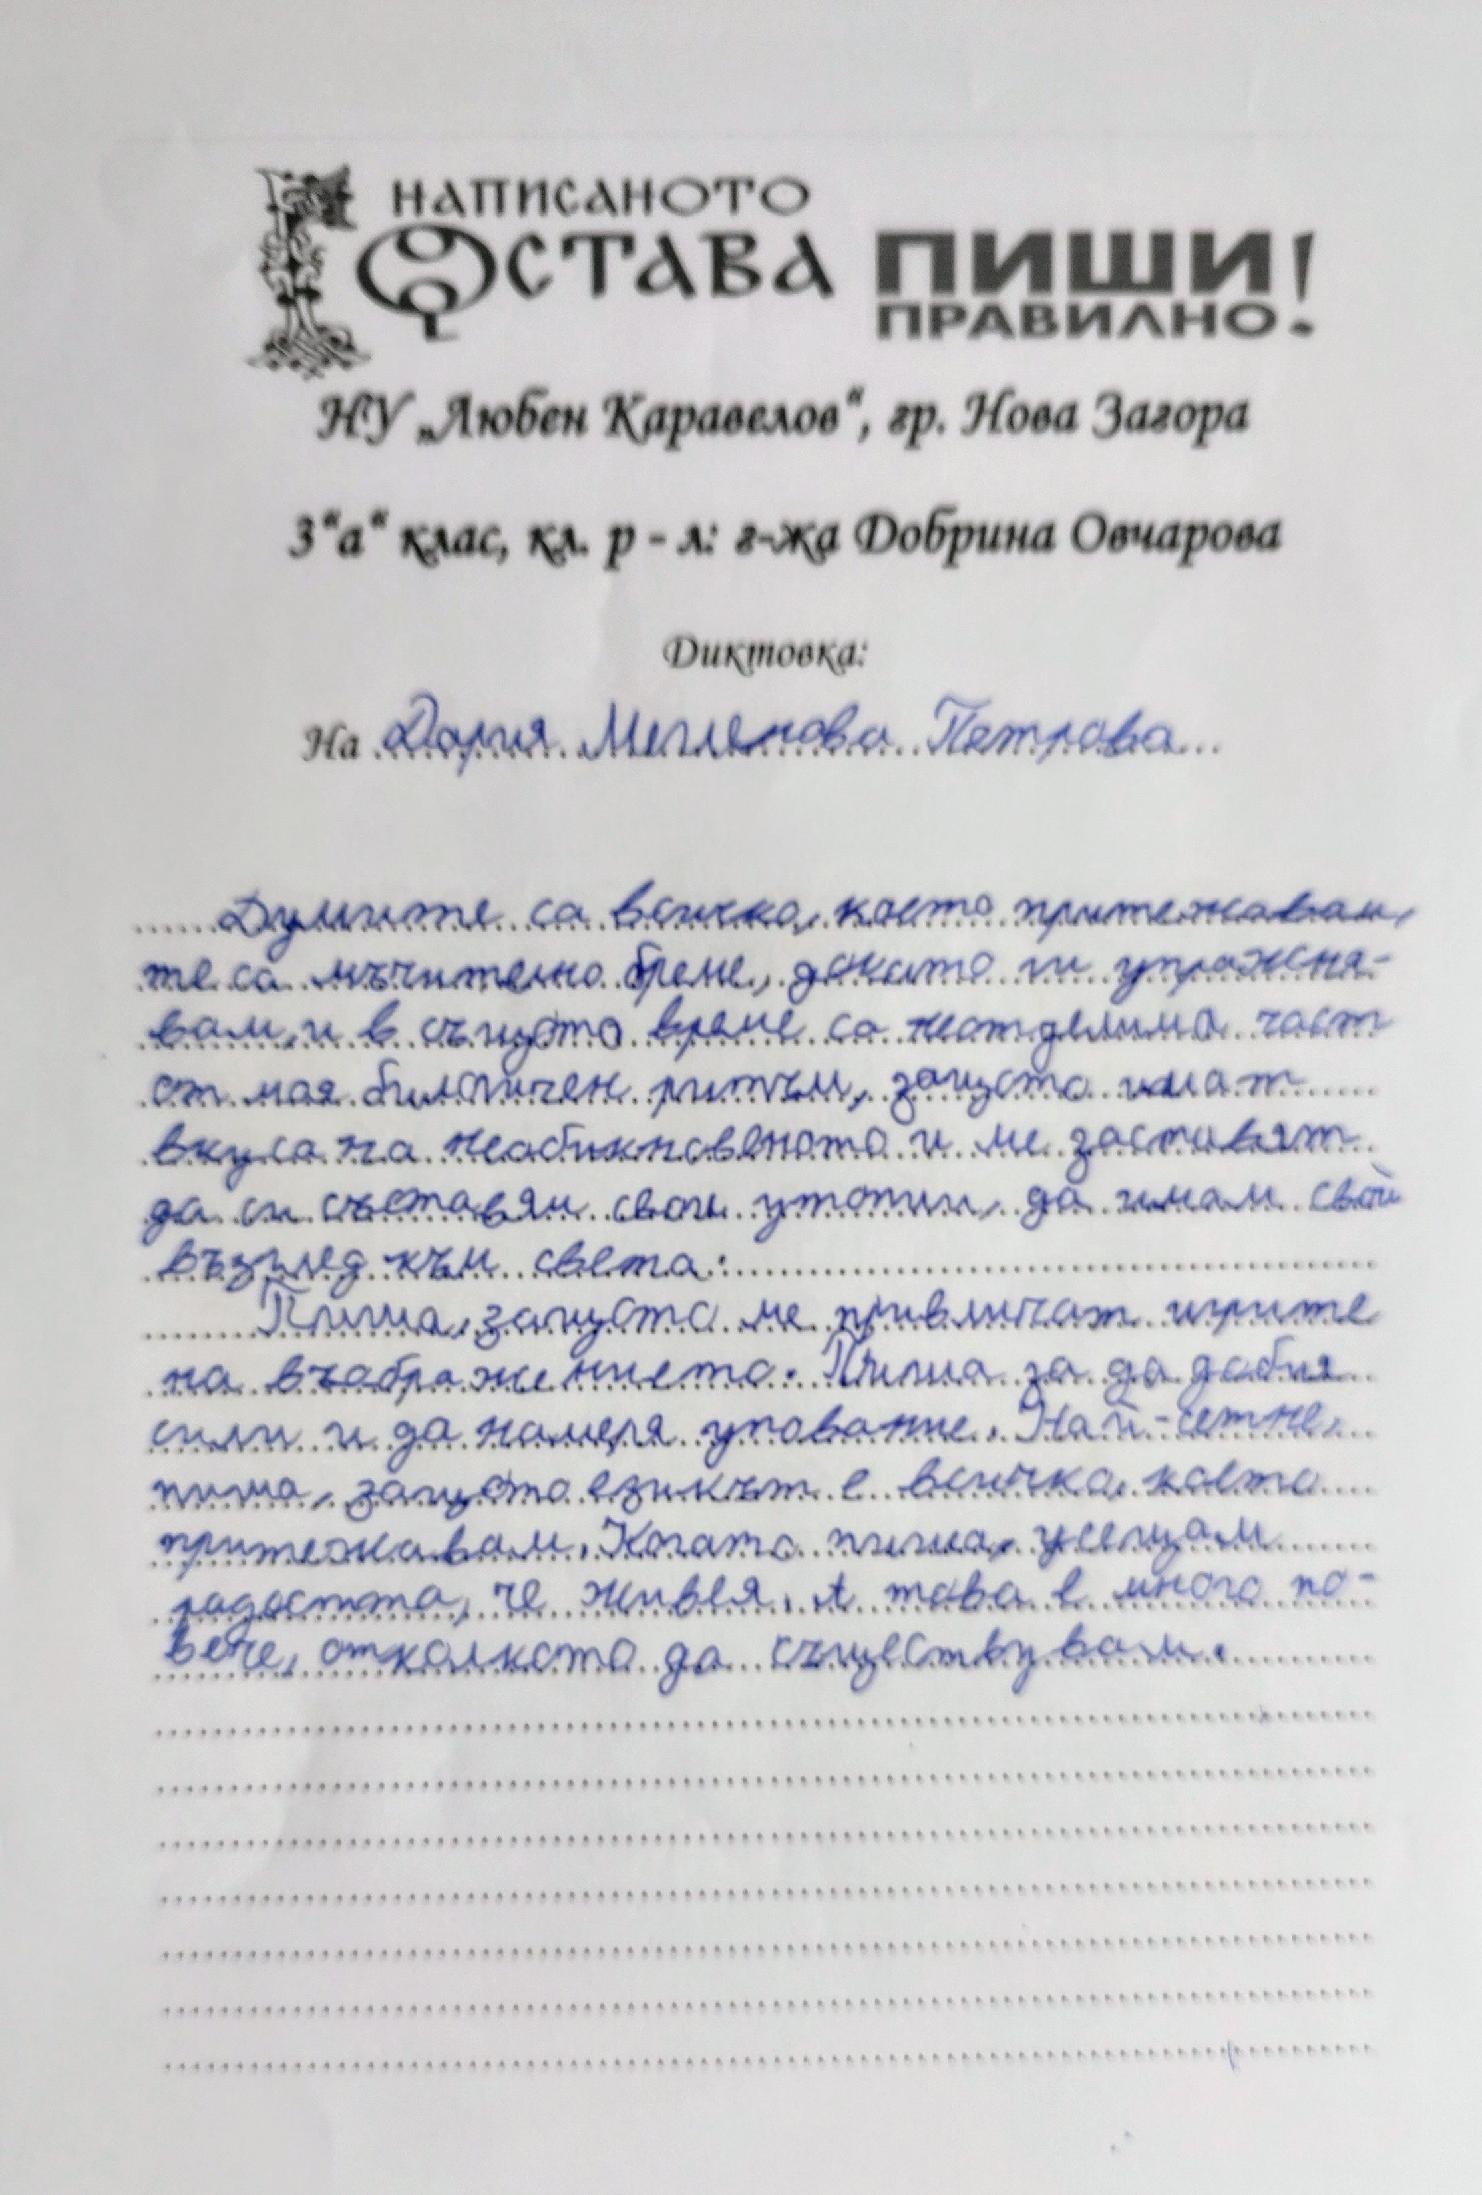 НАПИСАНОТО
ОСТАВА ПИШИ
ПРАВИЛНО!
НУ „Любен Каравелов“, гр. Нова Загора
3“а“ клас, кл. р - л: г-жа Добрина Овчарова
Диктовка:
На Дария Мегленова Петрова
Думите са всичко, което притежавам,
те са мъчително бреме, докато ги упражня-
вам, и в същото време са неотделима част
от моя биологичен ритъм, защото имат
вкуса на необикновеното и ме заставят
да си съставям свои утопии, да имам свой
възглед към света.
Пиша, защото ме привличат игрите
на въображението. Пиша за да добия
сили и да намеря упование. Най-сетне,
пиша, защото езикът е всичко, което
притежавам. Когато пиша, усещам
радостта, че живея. А това е много по-
вече, отколкото да съществувам.